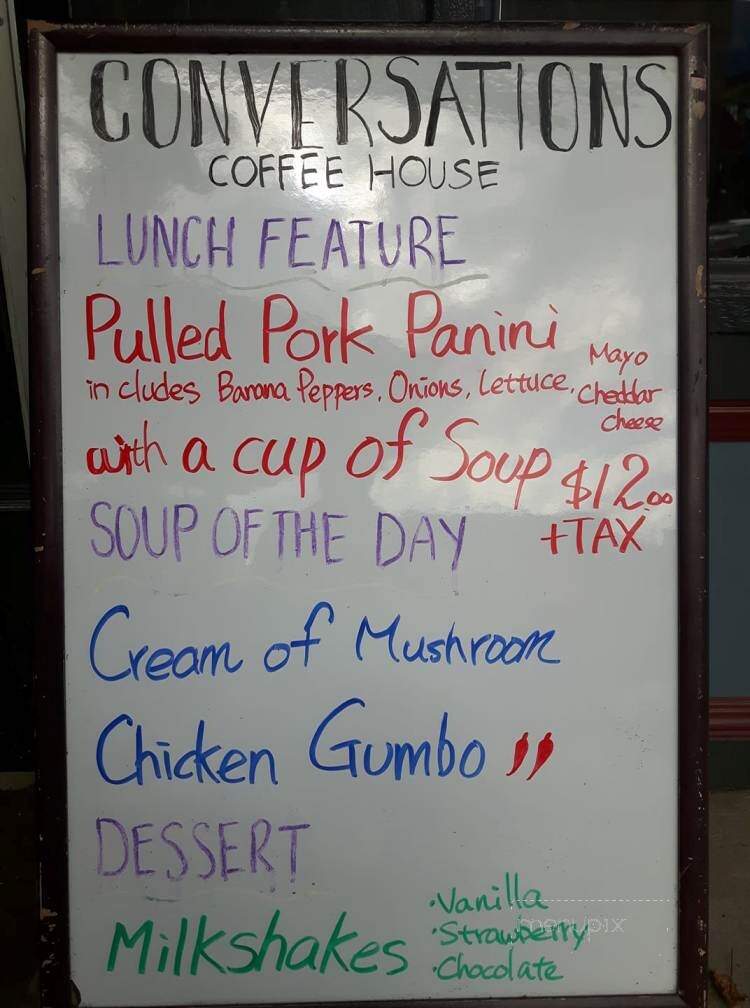 CONVERSATIONS
COFFEE HOUSE
LUNCH FEATURE
Pulled Pork Panini
includes Banana Peppers, Onions, Lettuce, Mayo
Cheddar
cheese
with a cup of Soup $12.00
+TAX
SOUP OF THE DAY
Cream of Mushroom
Chicken Gumbo
DESSERT
Milkshakes
·Vanilla
·Strawberry
·Chocolate
menupix